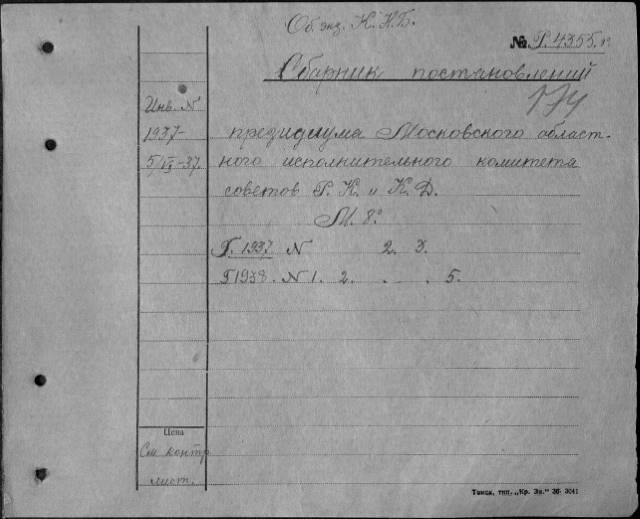 Об. экз. К.К.Б.
№ Р.4355.
Сборник постановлений
174
Инв. N
1937-
5/VI-37.
президиума Московского област-
ного исполнительного комитета
советов Р. К. и К. Д.
М. 8°
Г. 1937 N 2. 3.
Г 1938. N 1. 2. . . . 5.
Цена
См контр
лист.
Томск, тип. „Кр. Зн." 36-3041